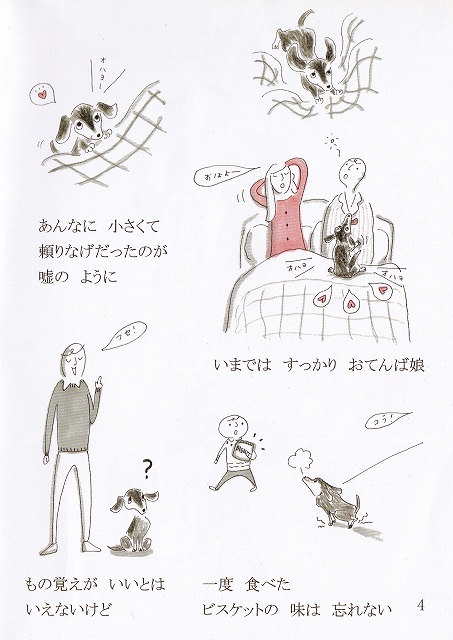 オハヨー
あんなに 小さくて
頼りなげだったのが
嘘の ように
おはよー
オハヨ
オハヨ
いまでは すっかり おてんば娘
フセ!
?
もの覚えが いいとは
いえないけど
コラ!
一度 食べた
ビスケットの 味は 忘れない
4